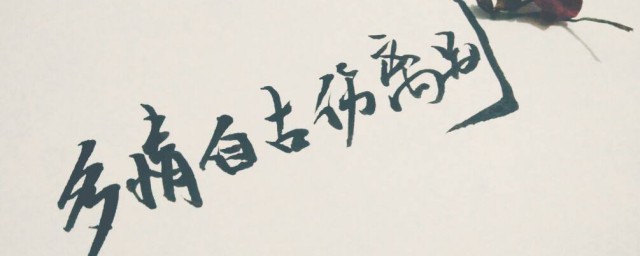 多情自古伤离别